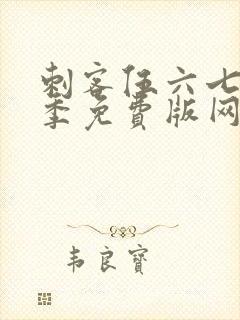 刺客伍六七
季免費版网
韦良寶